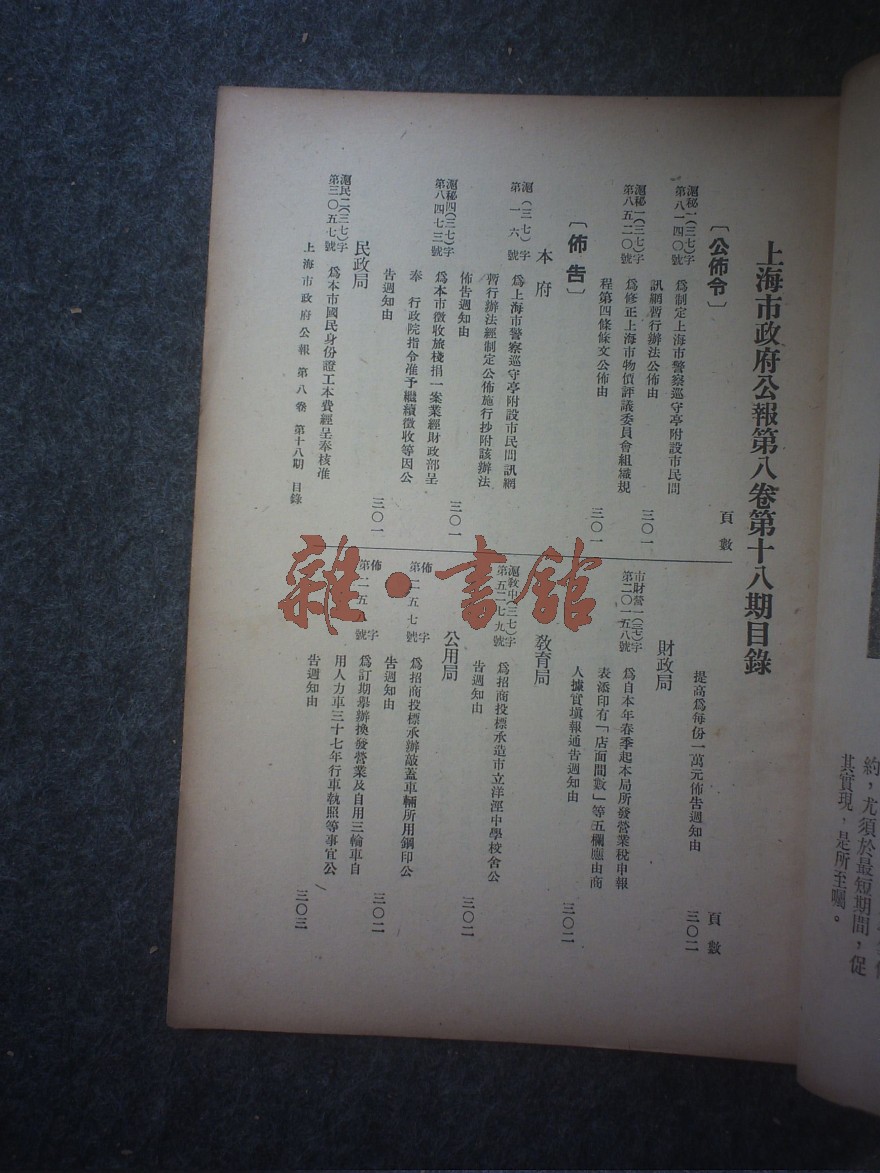 上海市政府公報第八卷第十八期目錄
頁數
〔公佈令〕
滬秘一(三七)字
第八一四〇號
爲制定上海市警察巡守亭附設市民問
訊網暫行辦法公佈由
三〇一
滬秘一(三七)字
第八五二〇號
爲修正上海市物價評議委員會組織規
程第四條條文公佈由
三〇一
〔佈告〕
本府
滬(三七)字
第一六號
爲上海市警察巡守亭附設市民問訊網
暫行辦法經制定公佈施行抄附該辦法
佈告週知由
三〇一
滬秘四(三七)字
第八四七三號
爲本市徵收旅棧捐一案業經財政部呈
奉 行政院指令准予繼續徵收等因公
告週知由
三〇一
民政局
滬民二(三七)字
第三〇五七號
爲本市國民身份證工本費經呈奉核准
上海市政府公報 第八卷 第十八期 目錄
頁數
提高爲每份一萬元佈告週知由
三〇二
財政局
市財營一(三七)字
第二〇一五八號
爲自本年春季起本局所發營業稅申報
表添印有「店面間數」等五欄應由商
人據實填報通告週知由
三〇二
敎育局
滬敎中(三七)字
第五二七九號
爲招商投標承造市立洋涇中學校舍公
告週知由
三〇二
公用局
佈字
第二五七號
爲招商投標承辦敲蓋車輛所用鋼印公
告週知由
三〇二
佈字
號
爲訂期舉辦換發營業及自用三輪車自
用人力車三十七年行車執照等事宜公
告週知由
三〇三
約,尤須於最短期間,促
其實現,是所至囑。
雜·書館